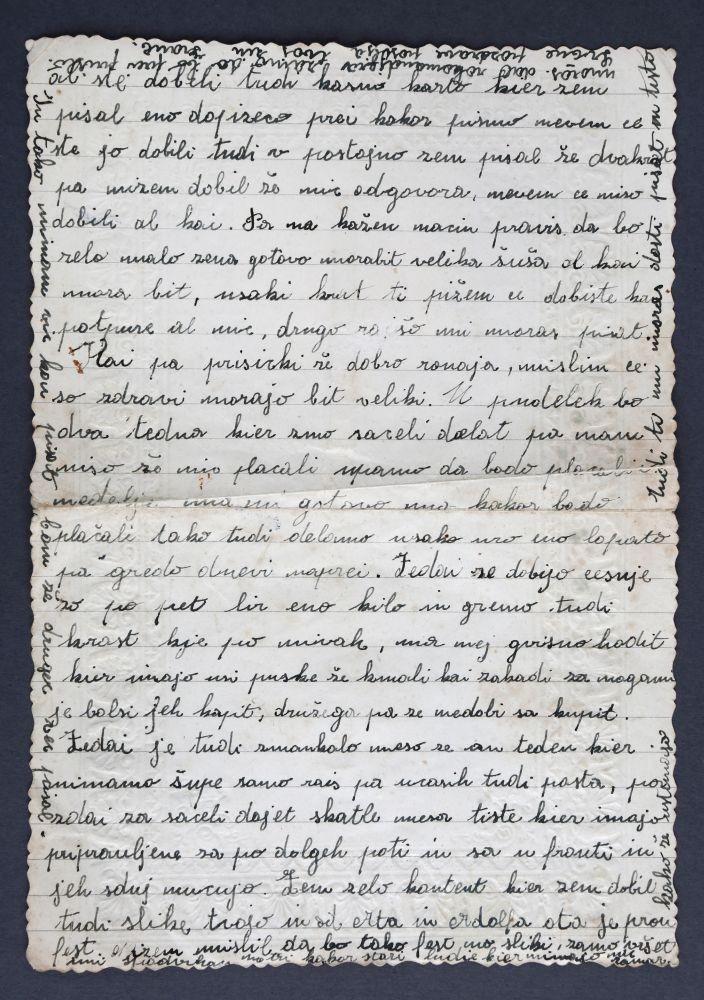 al ste dobili tudi kasno karto kier zem
pisal eno dopizeco prei kakor pismo nevem ce
ste jo dobili tudi v postojno zem pisal že dvakrat
pa nizem dobil še nic odgovora, nevem ce niso
dobili al kai. Pa na kažen nacin pravis, da bo
zelo malo zena gotovo morabit velika šuša al kai
mora bit, usaki krat ti pižem ce dobiste ka
potpure al nic, drugo rajšo mi moras pisat.
Kai pa prisicki že dobro ronaja, mislim ce
so zdravi morajo bit veliki. U pndelek bo
dva tedna kier zmo saceli dælat pa nam
niso šo nic placali upamo da bodo placali
nedelje ma ni gotovo ma kakor bodo
plačali tako tudi delamo usako uro eno lopato
pa gredo dnevi naprei. Zedai se dobijo cesnje
šo po pet lir eno kilo in gremo tudi
krast kje po nivah, ma nej gvisno hodit
kier imajo usi puske že kmali kai zakadi za nogami
je bolsi jeh kupit, druzega pa ze nedobi sa kupit.
Zedai je tudi zmankalo meso ze an teden kier
nimamo šupe samo rais pa ucasih tudi pasta, pa
zdai za saceli dajet skatle mesa tiste kier imajo
pripravljene za po dolgeh poti in sa u fronti in
jeh sdaj nucajo. Zem zelo kontent kier zem dobil
tudi slike tvojo in od erta in erdolfa ata je prou
fest nizem mislil da bo tako fest na sliki, zamo višet
mi kakor stari ludie kier nimajo
In tako nimam vic kai pisat bom že druger vec pisal.
tudi ti mi moras dosti pisat in tisto
kako že
Srcne pozdrave poslja tvoj sin